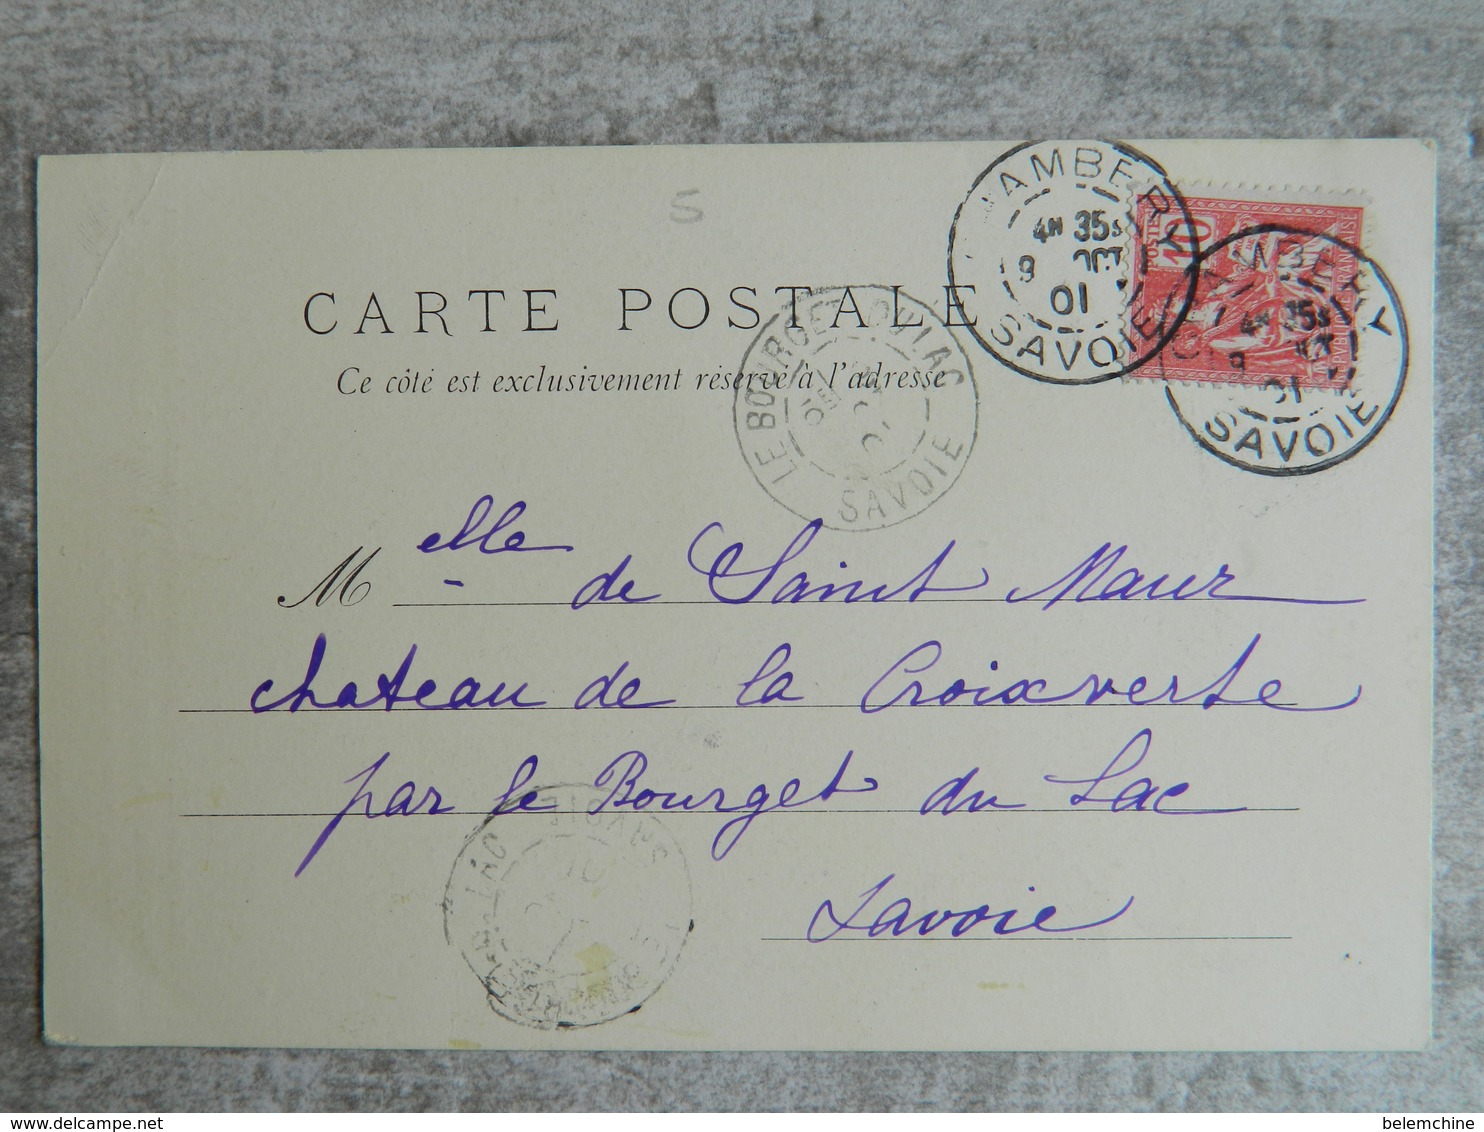 5
CHAMBERY
4H 35S
9 OCT
01
SAVOIE
POSTES 10
CHAMBERY
4H 35S
9 OCT
01
SAVOIE
CARTE POSTALE
Ce côté est exclusivement réservé à l'adresse
LE BOURGET-DU-LAC
01
SAVOIE
Melle de Saint Maur
chateau de la Croixverte
par le Bourget du Lac
Savoie
LE BOURGET-DU-LAC
01
SAVOIE
delcampe.net
belemchine